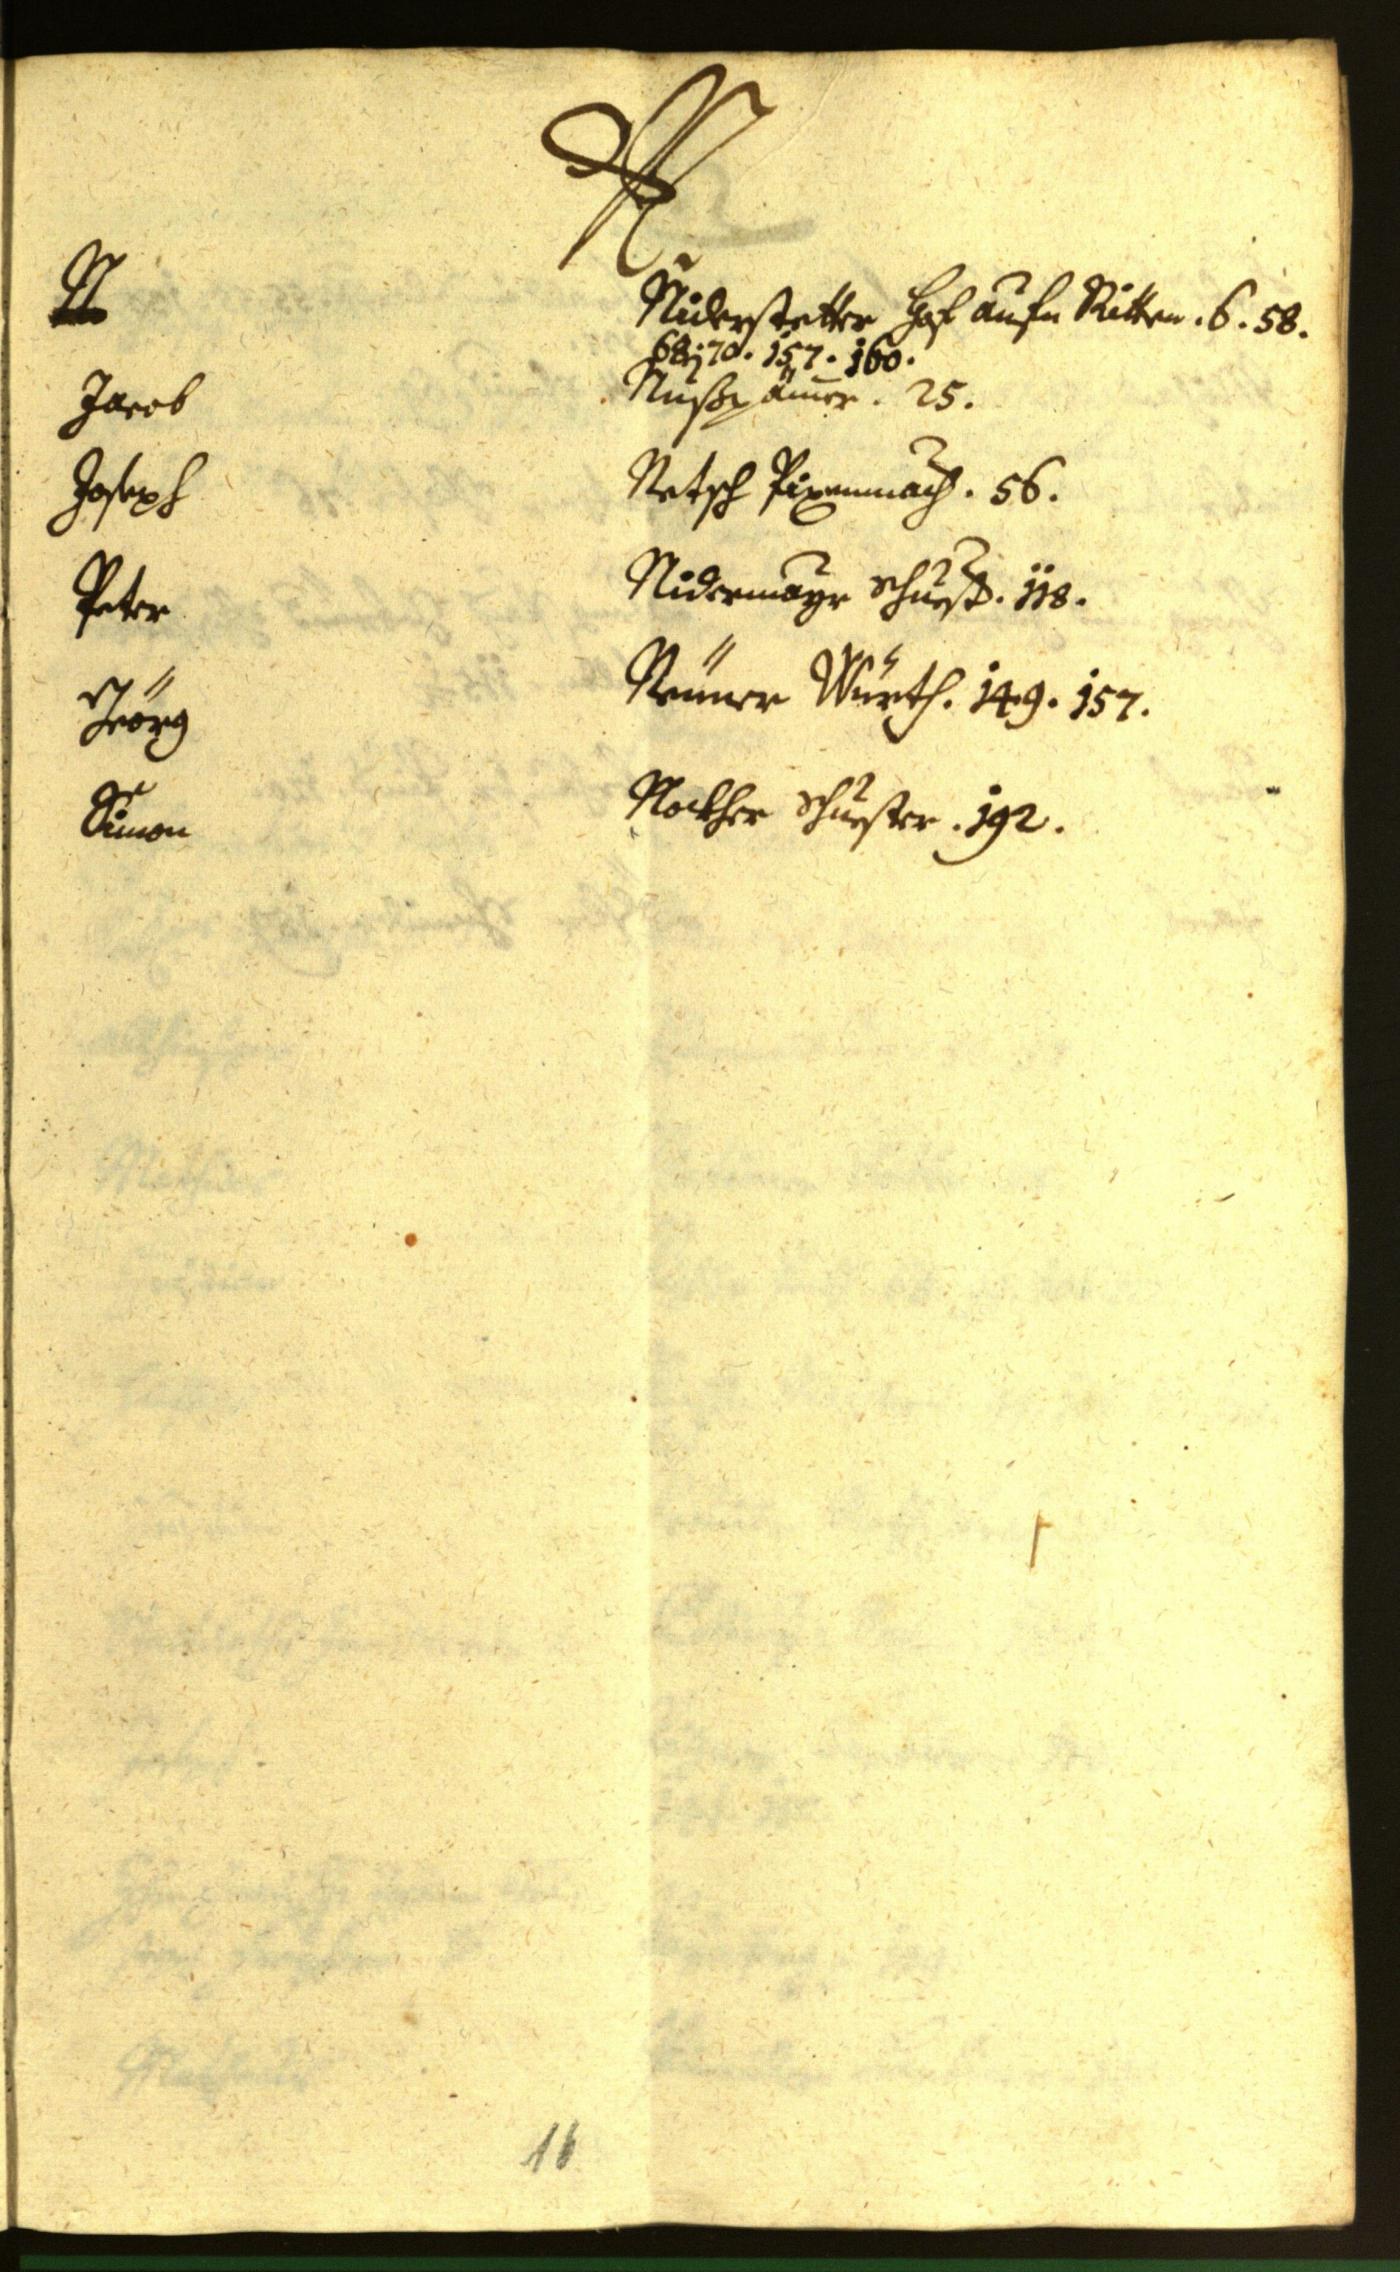 N
N Niderstetter Hof aufn Ritten . 6 . 58 .
68 . 70 . 157 . 160 .
Jacob Nußpämer . 25 .
Joseph Netsch Pixenmach . 56 .
Peter Nidermayr Schuest . 118 .
Geörg Neüner Würth . 149 . 157 .
Simon Nockher Schuester . 192 .
16